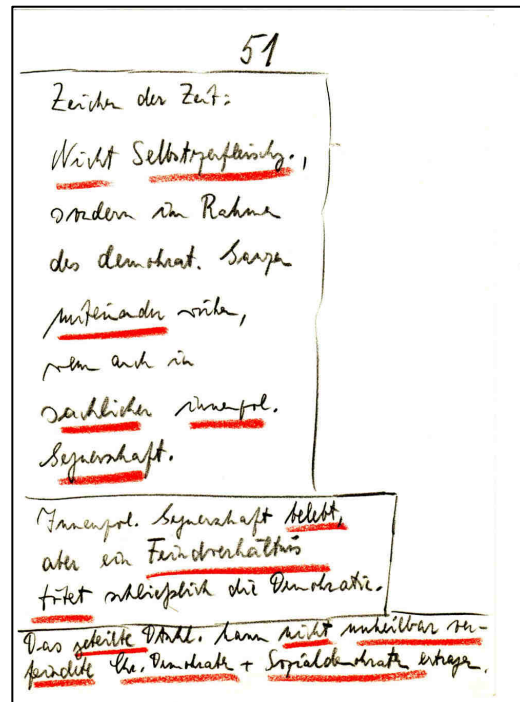 51
Zeichen der Zeit:
Nicht Selbstzerfleischg.,
sondern im Rahmen
des demokrat. Ganzen
miteinander wirken,
wenn auch in
sachlicher innenpol.
Gegnerschaft.
Innenpol. Gegnerschaft belebt,
aber ein Feindverhältnis
tötet schließlich die Demokratie.
Das geteilte Dtschl. kann nicht unheilbar ver-
feindete Chr. Demokraten + Sozialdemokraten ertragen.